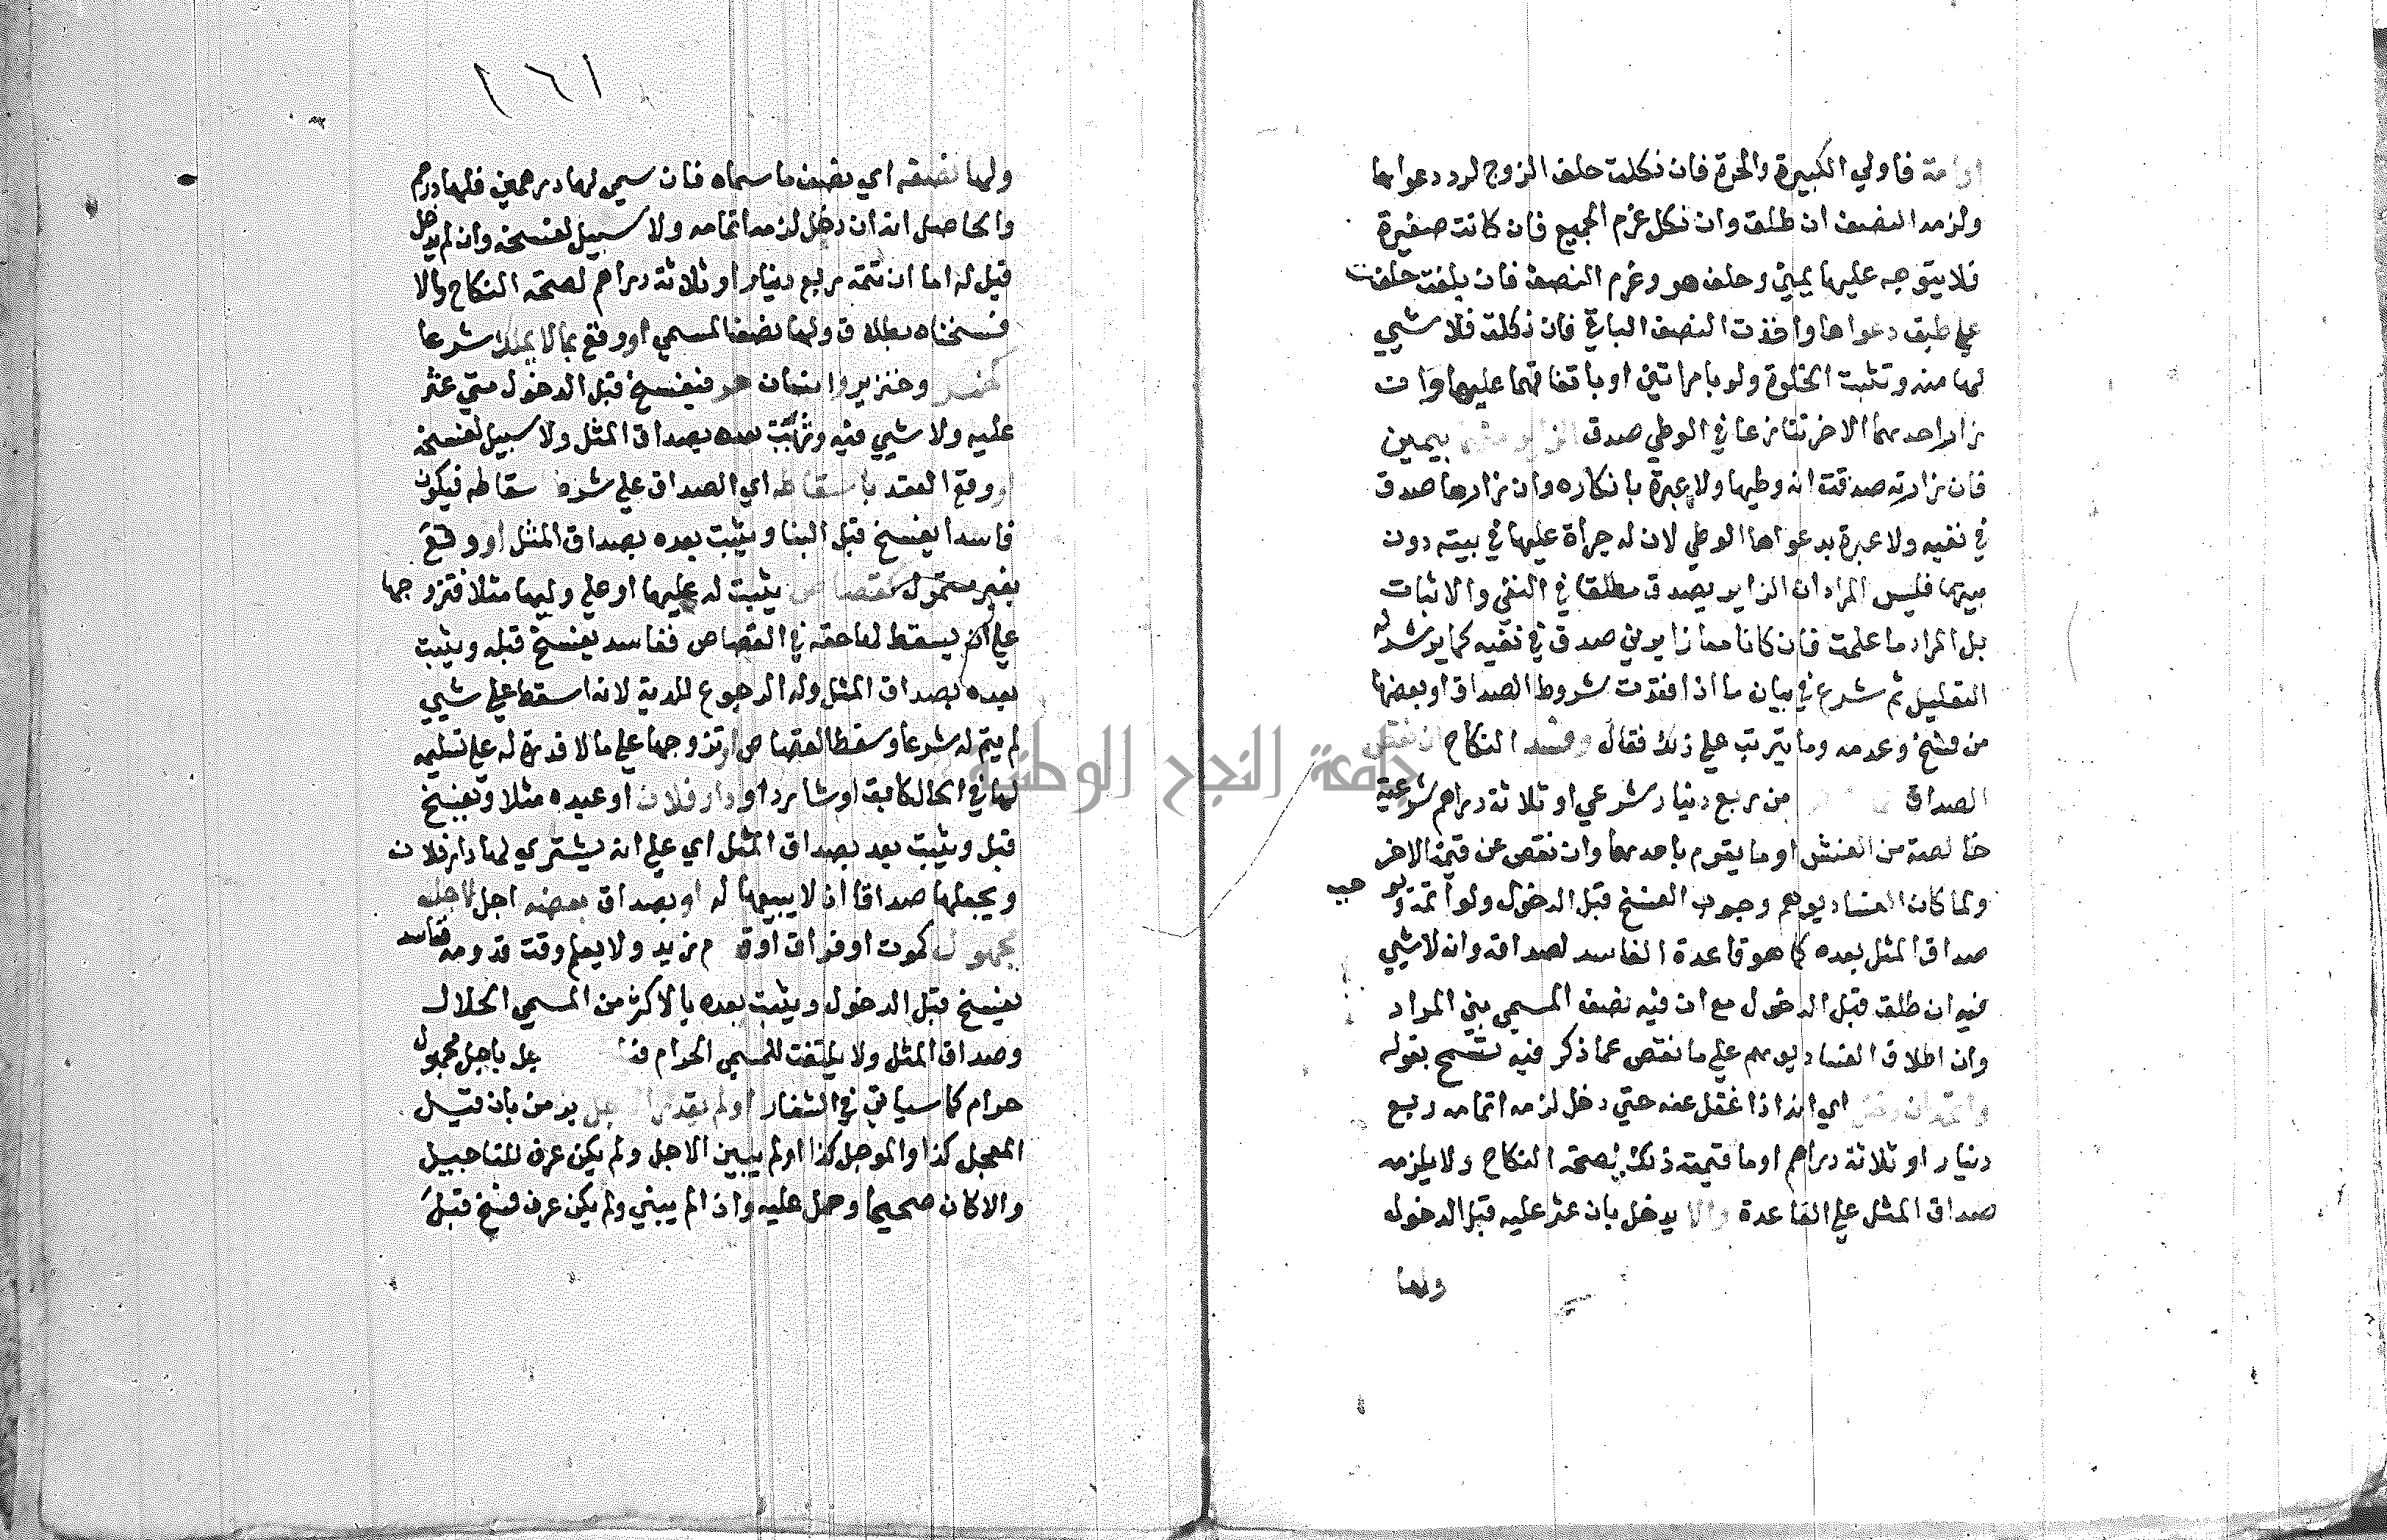 او امة فاولي الكبيرة والحرة فان نكلت حلف الزوج لرد دعواها
ولزمه النصف ان طلق وان نكل غرم الجميع فان كانت صغيرة
فلا يتوجه عليها يمين وحلف هو وغرم النصف فان بلغت حلفت
علي طبق دعواها واخذت النصف الباقي فان نكلت فلا شيي
لها منه وتثبت الخلوة ولو بامراتين او باتفاقهما عليها وان
زار احدهما الاخر تنازعا في الوطي صدق الزاير منهما بيمين
فان زارته صدقت انه وطيها ولا عبرة بانكاره وان زارها صدق
في نفيه ولا عبرة بدعواها الوطي لان له جرأة عليها في بيته دون
بيتها فليس المراد ان الزاير يصدق مطلقا في النفي والاثبات
بل المراد ما علمت فان كانا معا زايرين صدق في نفيه كما يرشد له
التعليل ثم شرع في بيان ما اذا فقدت شروط الصداق او بعضها
من فسخ وعدمه وما يترتب علي ذلك فقال وفسد النكاح ان نقص
الصداق من ربع دينار شرعي او ثلاثة دراهم شرعية
خالصة من الغش او ما يقوم باحدهما وان نقص عن قيمة الاخر
ولما كان الفساد يوهم وجوب الفسخ قبل الدخول ولو اتمه ويوجب
صداق المثل بعده كما هو قاعدة الفاسد لصداقه وانه لا شيي
فيه ان طلق قبل الدخول مع ان فيه نصف المسمي بين المراد
وان اطلاق الفساد يوهم علي ما نقص عما ذكر فيه تسمح بقوله
واتمه ان دخل اي انه اذا غفل عنه حتي دخل لزمه اتمامه ربع
دينار او ثلاثة دراهم او ما قيمته ذلك لصحة النكاح ولا يلزمه
صداق المثل علي القاعدة والا يدخل بان عثر عليه قبل الدخول
ولها
١٦١
ولها نصفه اي نصف ما سماه فان سمي لها درهمين فلها درهم
والحاصل انه ان دخل لزمه اتمامه ولا سبيل لفسخه وان لم يدخل
قيل له اما ان تتمه ربع دينار او ثلاثة دراهم لصحة النكاح والا
فسخناه بطلاق ولها نصف المسمي او وقع بما لا يملك شرعا
كخمر وخنزير وانسان حر فيفسخ قبل الدخول متي عثر
عليه ولا شيي فيه وثبت بعده بصداق المثل ولا سبيل لفسخه
او وقع العقد باسقاطه اي الصداق علي شرط اسقاطه فيكون
فاسدا يفسخ قبل البنا ويثبت بعده بصداق المثل او وقع
بغير متمول كقصاص يثبت له عليها او علي وليها مثلا فتزوجها
علي ان يسقط لها حقه في القصاص ففاسد يفسخ قبله ويثبت
بعده بصداق المثل وله الرجوع للدية لانه اسقط علي شيي
لم يتم له شرعا وسقط القصاص او تزوجها علي ما لا قدرة له علي تسليمه
لها في الحال كابق او شارد او دار فلان او عبده مثلا ويفسخ
قبل ويثبت بعد بصداق المثل اي علي انه يشتري لها دار فلان
ويجعلها صداقا ان لا يبيعها له او بصداق بعضه اجل لاجل
مجهول كموت او فراق او قدوم زيد ولا يعلم وقت قدومه ففاسد
يفسخ قبل الدخول ويثبت بعده بالاكثر من المسمي الحلال
وصداق المثل ولا يلتفت للمسمي الحرام باجل مجهول
حرام كما سياتي في الشغار او لم يقيد الاجل بزمن بان قيل
المعجل كذا والموجل كذا او لم يبين الاجل ولم يكن عرف للتاجيل
والا كان صحيحا وحمل عليه وان لم يبني ولم يكن عرف فسخ قبل